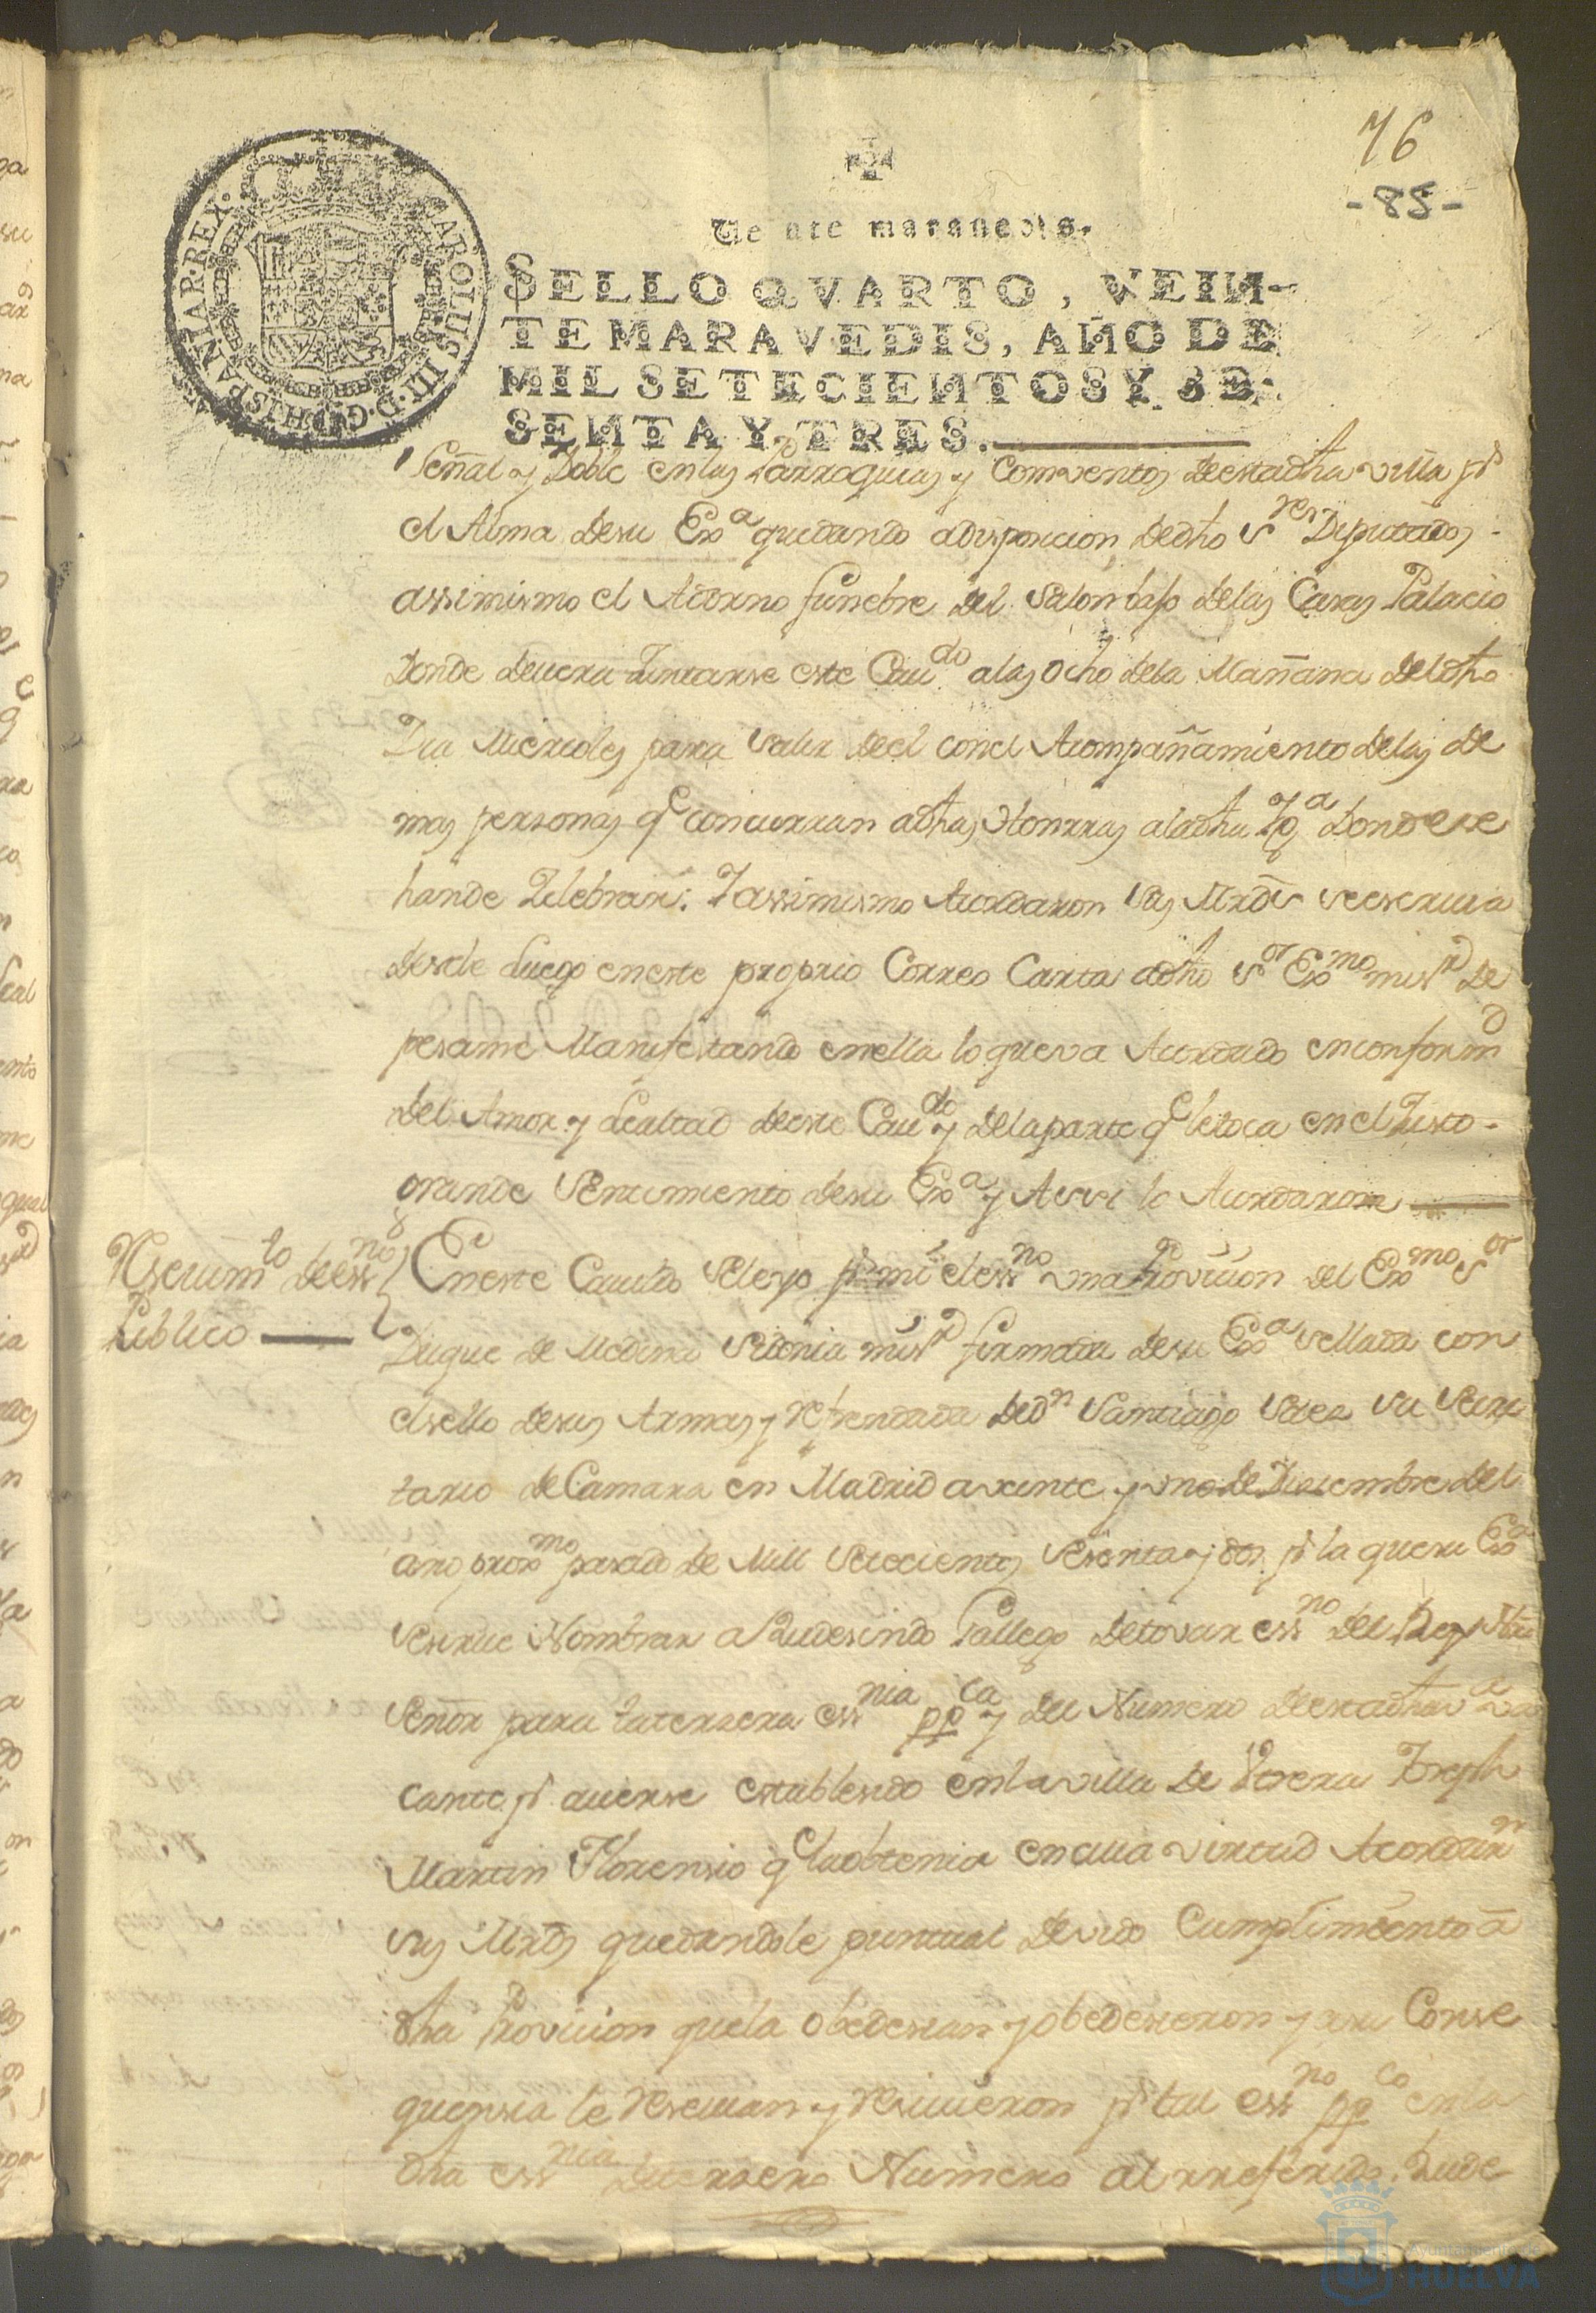 76
-85-
Veinte maravedis.
SELLO QVARTO, VEIN-
TE MARAVEDIS, AÑO DE
MIL SETECIENTOS Y SE-
SENTA Y TRES.
CAROLUS III D. G. HISPANIAR. REX.
Señal y Doble en las Parroquias y Comventos de esta dha villa pr
el Alma de su Exa quedando a disposicion de dhos Sres Diputados
assimismo el Adorno funebre del Salon bajo de las Casas Palacio
donde devera Juntarse este Caudo a las ocho de la Mañana del dho
Dia Miercoles para salir de el con el Acompañamiento de las de
mas personas qe concurran a dhas Honrras a la dha Yga donde se
han de Zelebrar: Y assimismo Acordaron sus Mrds se escriva
desde Luego en este proprio Correo Carta a dho Sor Exmo mi Sr de
pesame Manifestando en ella lo que va Acordado en conformd
del Amor y Lealtad de este Caudo y de la parte qe le toca en el Justo
grande Sentimiento de su Exa y Assi lo Acordaron
Resevimto de essno
Publico
En este Cavildo se leyo pr mi el essno una Provision del Exmo Sor
Duque de Medina Sidonia mi Sr firmada de su Exa sellada con
el sello de sus Armas y refrendada de Dn Santiago Saez su Secre
tario de Camara en Madrid a veinte y uno de Diziembre del
año proxmo pasado de Mill Setecientos Sesenta y dos pr la que su Exa
se sirve Nombrar a Rudesindo Gallego de tovar essno del Rey Ntro
Señor para la tersera essnia ppca y del Numero de esta dha va va
cante pr averse establesido en la villa de Utrera Joseph
Martin Florensio qe la obtenia en cuia virtud Acordaron
sus Mrds que dandole puntual devido Cumplimiento a
dha Provision que la obedesian y obedesieron y en su Conse
quensia le resevian y resivieron pr tal essno ppco en la
dha essnia de tersero Numero al rreferido Rude
Ayuntamiento de
HUELVA